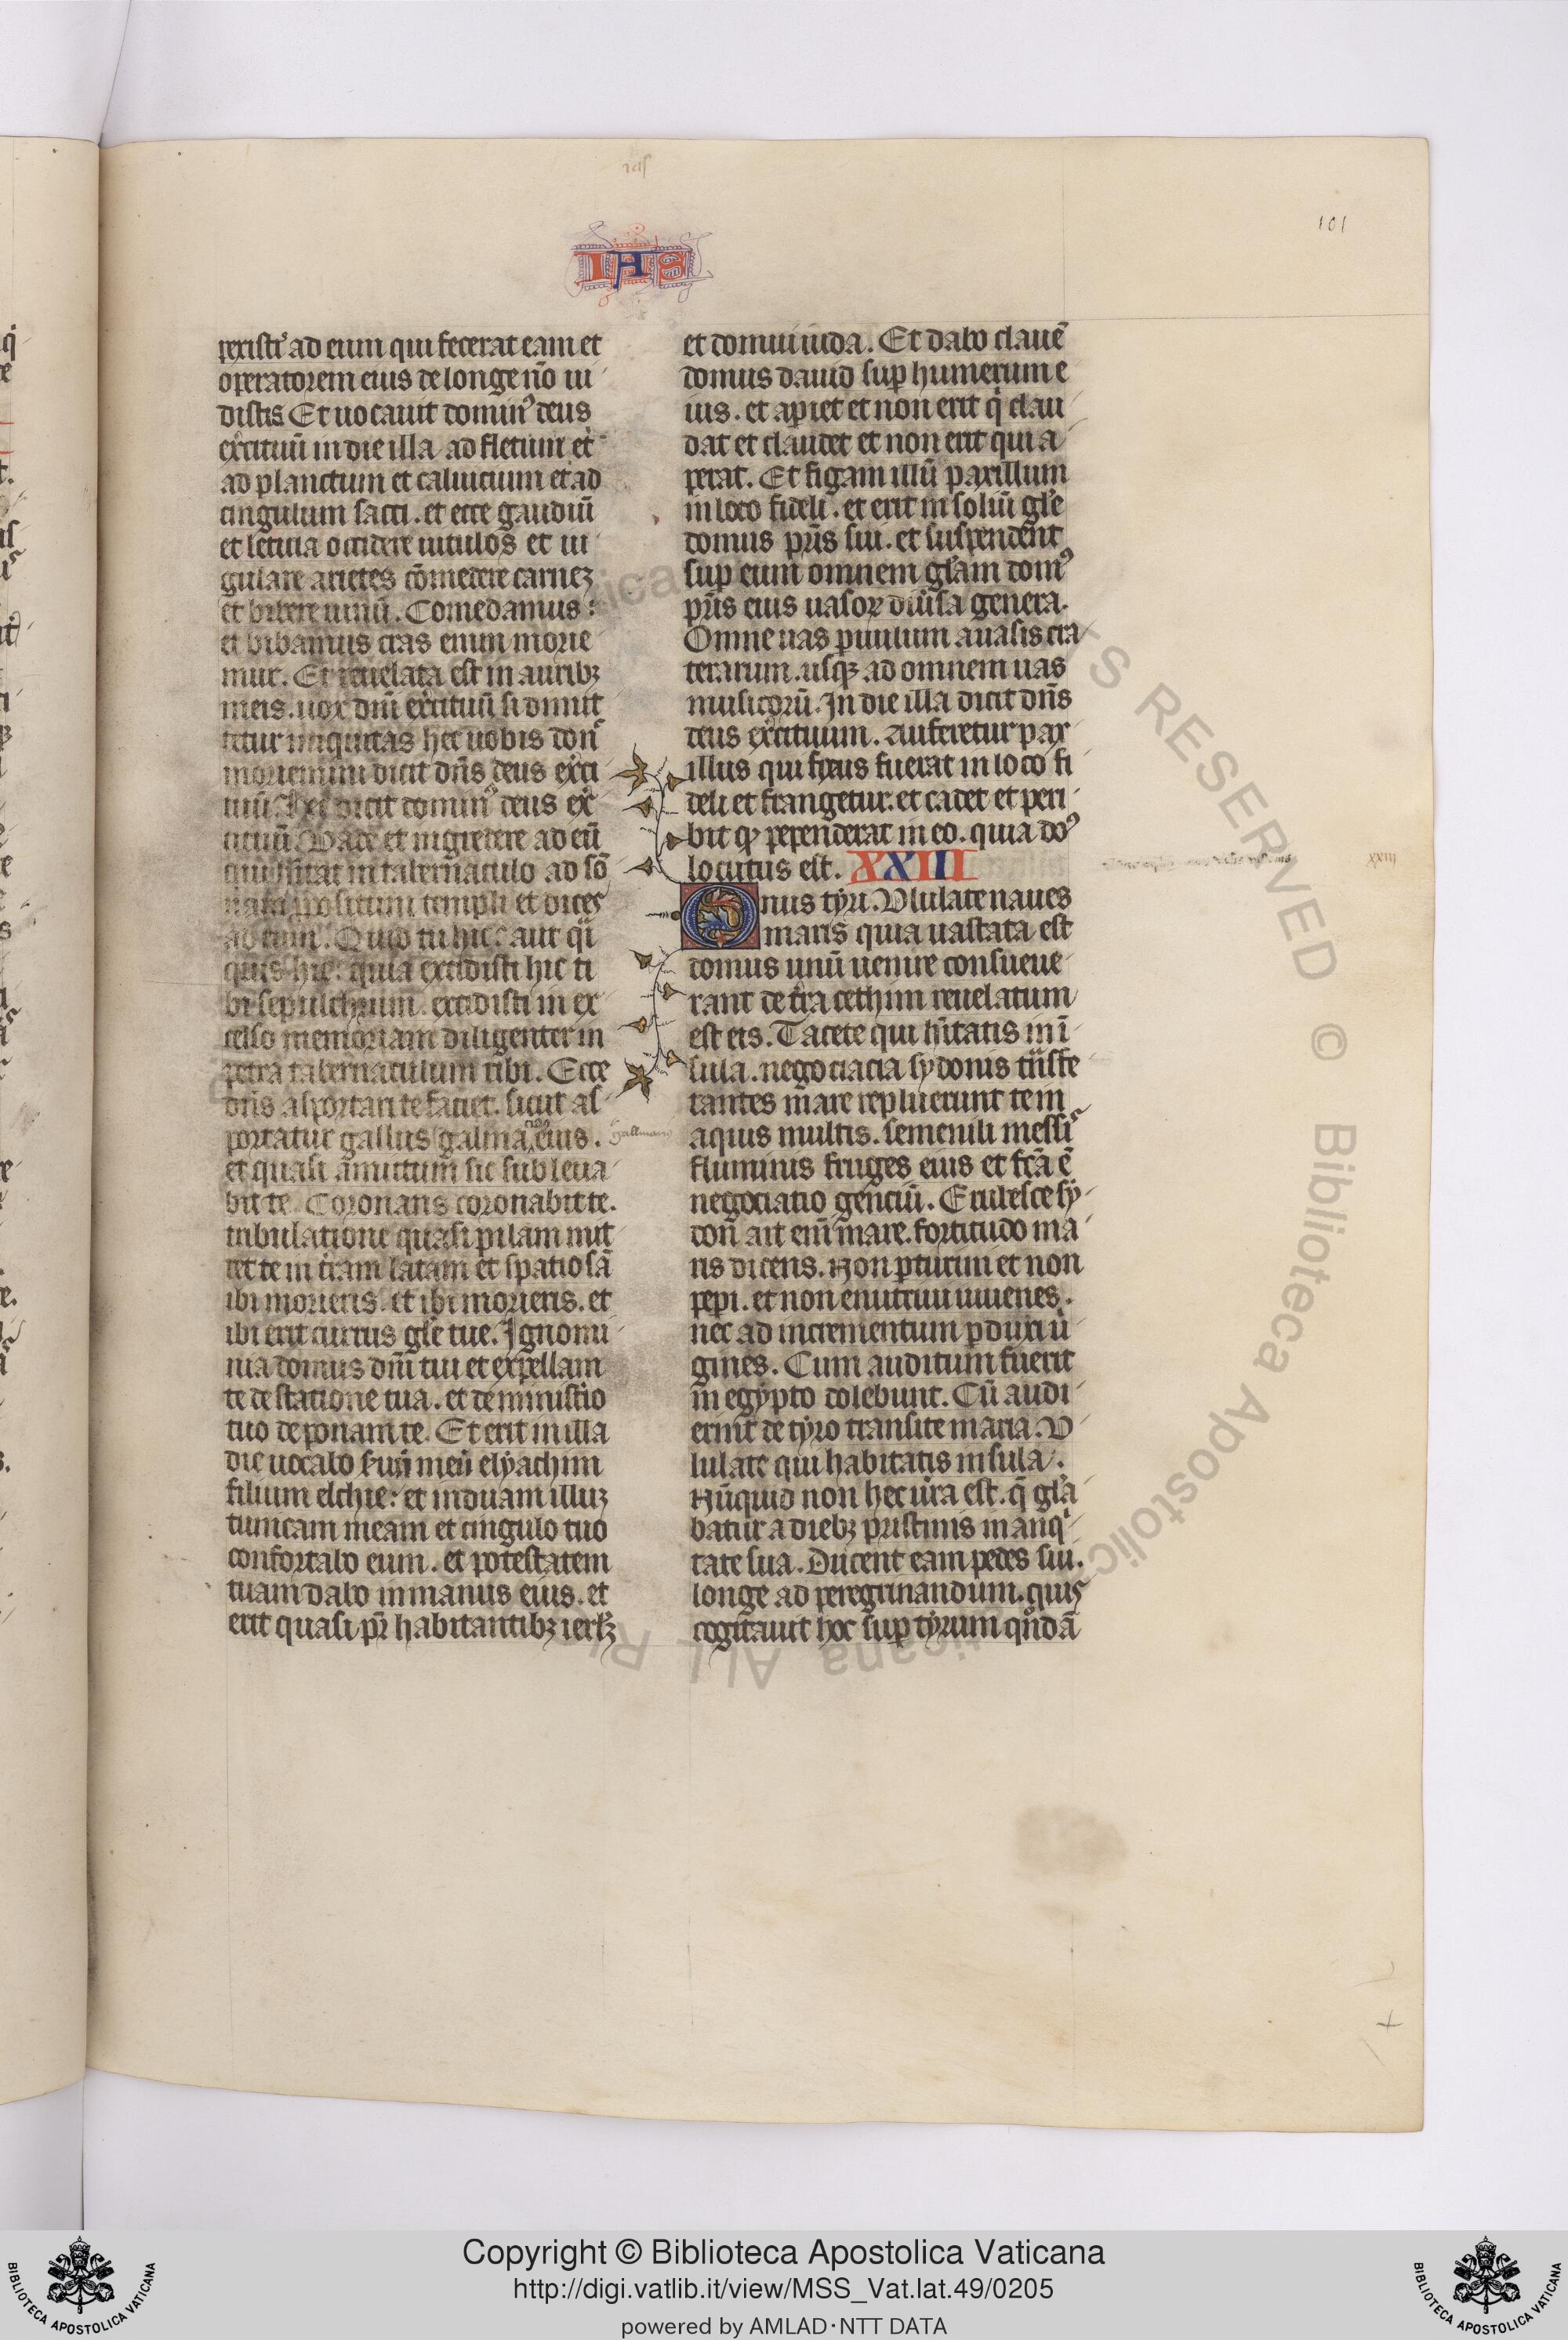 101
IAS
pexistis ad eum qui fecerat eam et
operatorem eius de longe nō ui
distis Et uocauit domin⁹ deus
exͬcituū in die illa ad fletum et
ad planctum et caluicium et ad
cingulum sacci . et ecce gaudiū
et leticia occidere uitulos et iu
gulare arietes cōmedere carneȝ
et bibere uinū . Comedamus :
et bibamus cras enim morie
mur . Et reuelata est in auribȝ
meis . uox dnī exͬcituū si dimit
tetur iniquitas hec uobis don
moriemini dicit dn̄s deus exͬci
tuū . Hec dicit domin⁹ deus exͬ
cituū Vade et ingredere ad eū
qui habitat in tabernaculo ad sob
nam prepositum templi et dices
ad eum . Quid tu hic aut q̄i
quis hic : quia excidisti hic ti
bi sepulchrum . excidisti in ex
celso memoriam diligenter in
petra tabernaculum tibi . Ecce
dn̄s asportari te faciet . sicut as
portatur gallus galinaciꝯ eius .
et quasi amictum sic subleua
bit te . Coronans coronabit te .
tribulatione quasi pilam mit
tet te in tͬram latam et spatiosā
ibi morieris . et ibi morieris . et
ibi erit currus gl̄e tue . Ignomi
nia domus dnī tui et expellam
te de statione tua . et de ministͥo
tuo deponam te . Et erit in illa
die uocabo seruū meū elyachim
filium elchie : et induam illuȝ
tunicam meam et cingulo tuo
confortabo eum . et potestatem
tuam dabo in manus eius . et
erit quasi pr̄ habitantibȝ ierlȝ
et domui iuda . Et dabo clauē
domus dauid suꝑ humerum e
ius . et apͥet et non erit qͥ clau
dat et claudet et non erit qui a
perat . Et figam illū paxillum
in loco fideli . et erit in soliū gl̄e
domus pr̄is sui . et suspendent
suꝑ eum omnem gl̄am dom⁹
pr̄is eius uasoꝝ diuͬsa genera .
Omne uas ꝑuulum a uasis cra
terarum . usqȝ ad omnem uas
musicorū . In die illa dicit dn̄s
deus exͬcituum . Auferetur pax
illus qui fixus fuerat in loco fi
deli et frangetur . et cadet et peri
bit qͦ pependerat in eo . quia do⁹
locutus est . XXIII
Onus tyri . Vlulate naues
maris quia uastata est
domus unū uenire consueue
rant de tͬra cethim reuelatum
est eis . Tacete qui hītatis in ī
sula . negociacia sydonis tn̄sfre
tantes mare repleuerunt te in
aquis multis . semen nili messis
fluminis fruges eius et fcā ē
negociatio genciū . Erubesce sy
don ait enī mare . fortitudo ma
ris dicens . Non ꝑturiui et non
peperi . et non enutriui iuuenes .
nec ad incrementum ꝓduxi uͥ
gines . Cum auditum fuerit
in egypto dolebunt . Cū audi
erint de tyro transite maria . V
lulate qui habitatis insula .
Nūquid non hec uͬra est . q̄ glͥa
batur a diebȝ pristinis in antiqͥ
tate sua . Ducent eam pedes sui .
longe ad peregrinandum . quis
cogitauit hoc suꝑ tyrum qn̄dā
xxiii
Copyright © Biblioteca Apostolica Vaticana
http://digi.vatlib.it/view/MSS_Vat.lat.49/0205
powered by AMLAD·NTT DATA
BIBLIOTECA APOSTOLICA VATICANA
BIBLIOTECA APOSTOLICA VATICANA